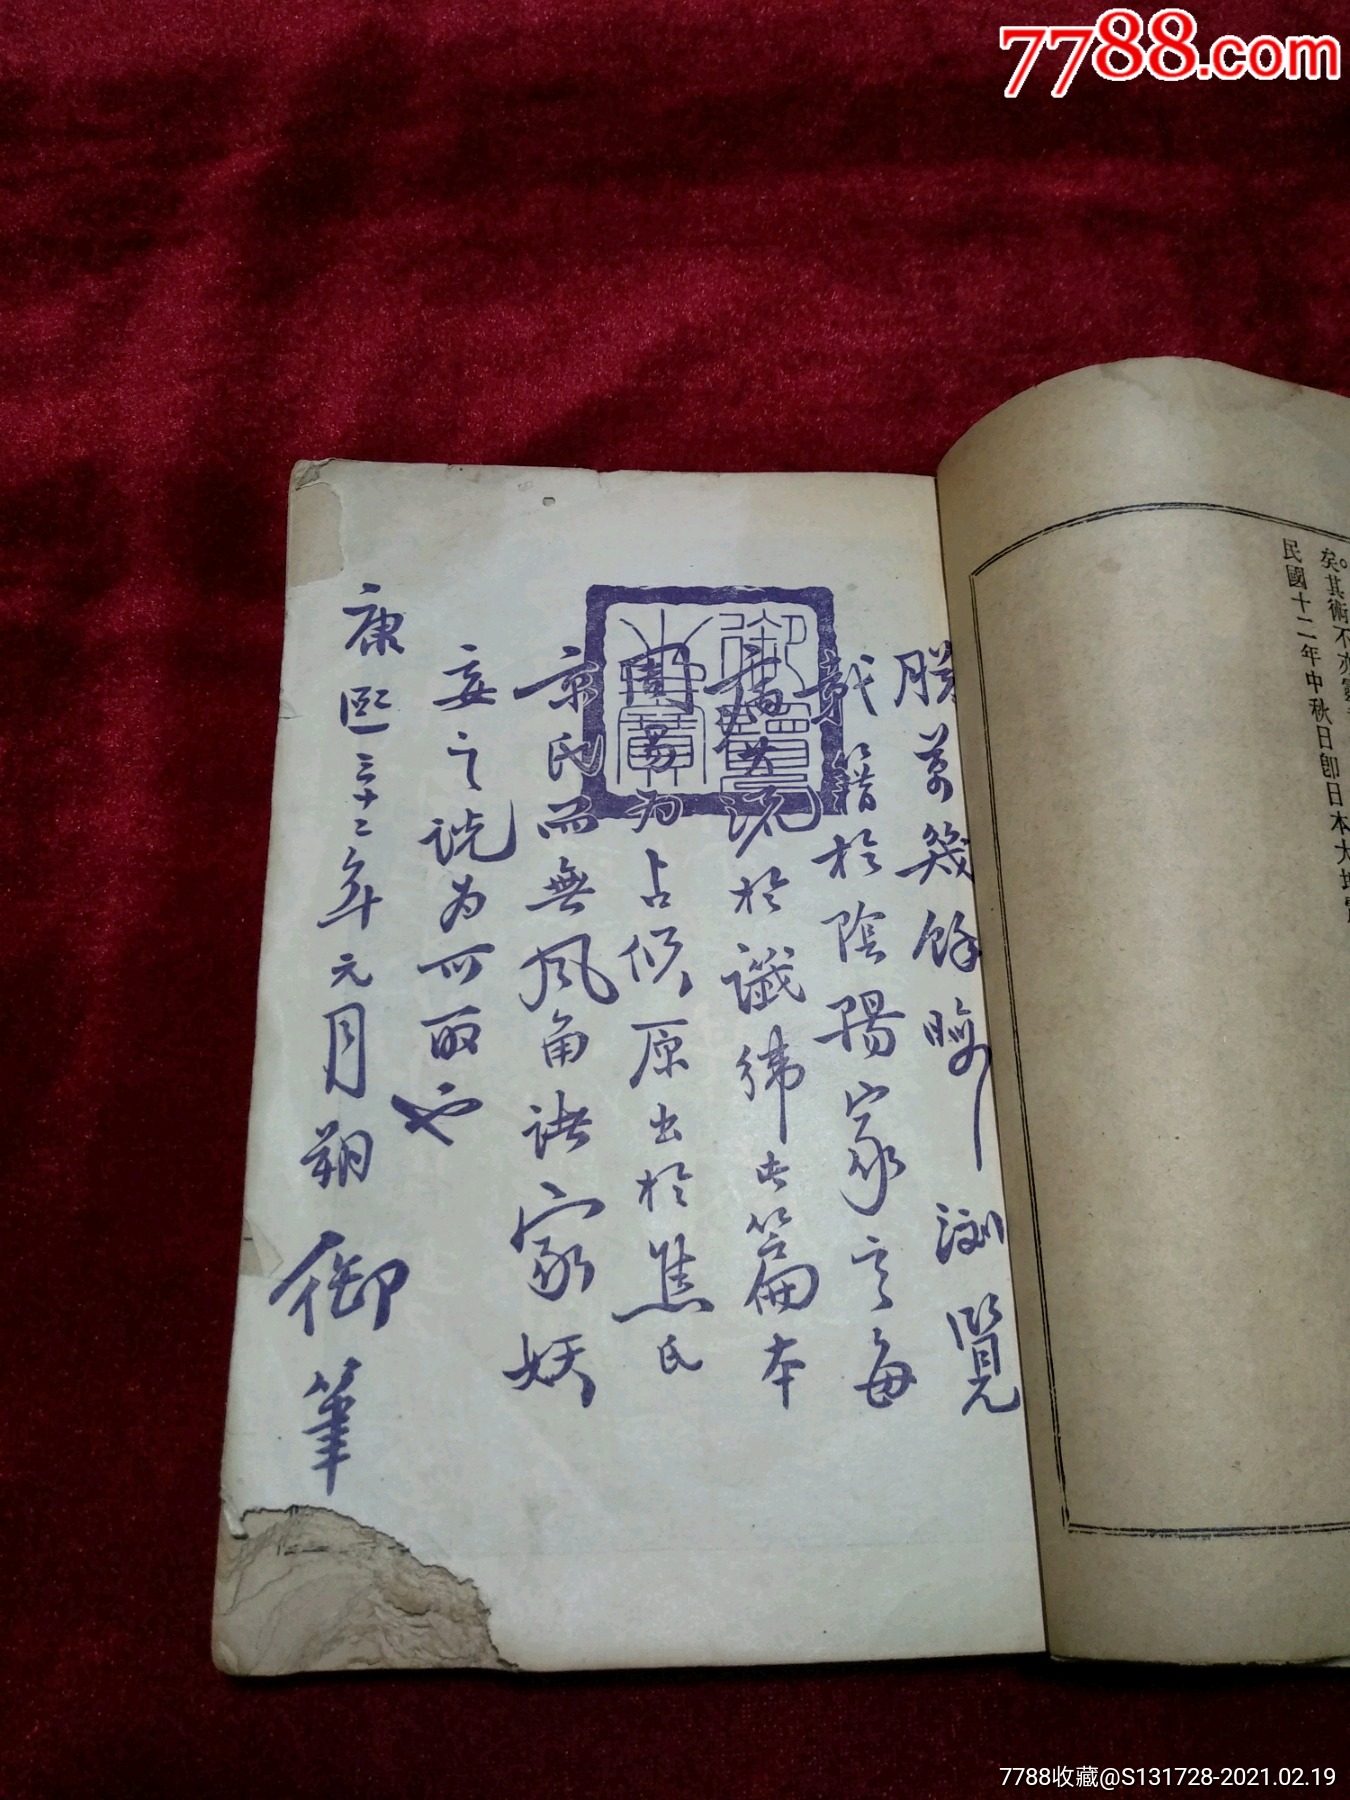 7788.com
矣。其術不亦靈
民國十二年中秋日卽日本大地震
朕萬幾餘暇瀏覽
載籍於陰陽家言每
病其流於讖緯此篇本
周易為占候原出於焦氏
京氏而無風角諸家妖
妄之說為可取也
康熙三十二年元月朔御筆
7788收藏@S131728-2021.02.19